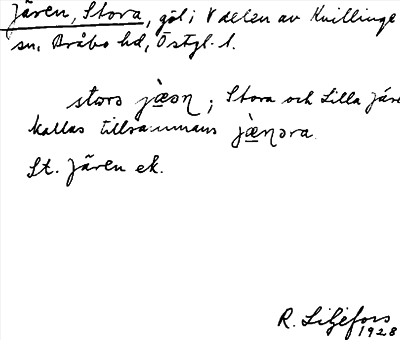 Jären, Stora, göl i V delen av Kvillinge
sn, Bråbo hd, Östgl. l.
storo jæ̀ən; Stora och Lilla Järe
kallas tillsammans jæ̀nəra.
St. Jären ek.
R. Liljefors
1928